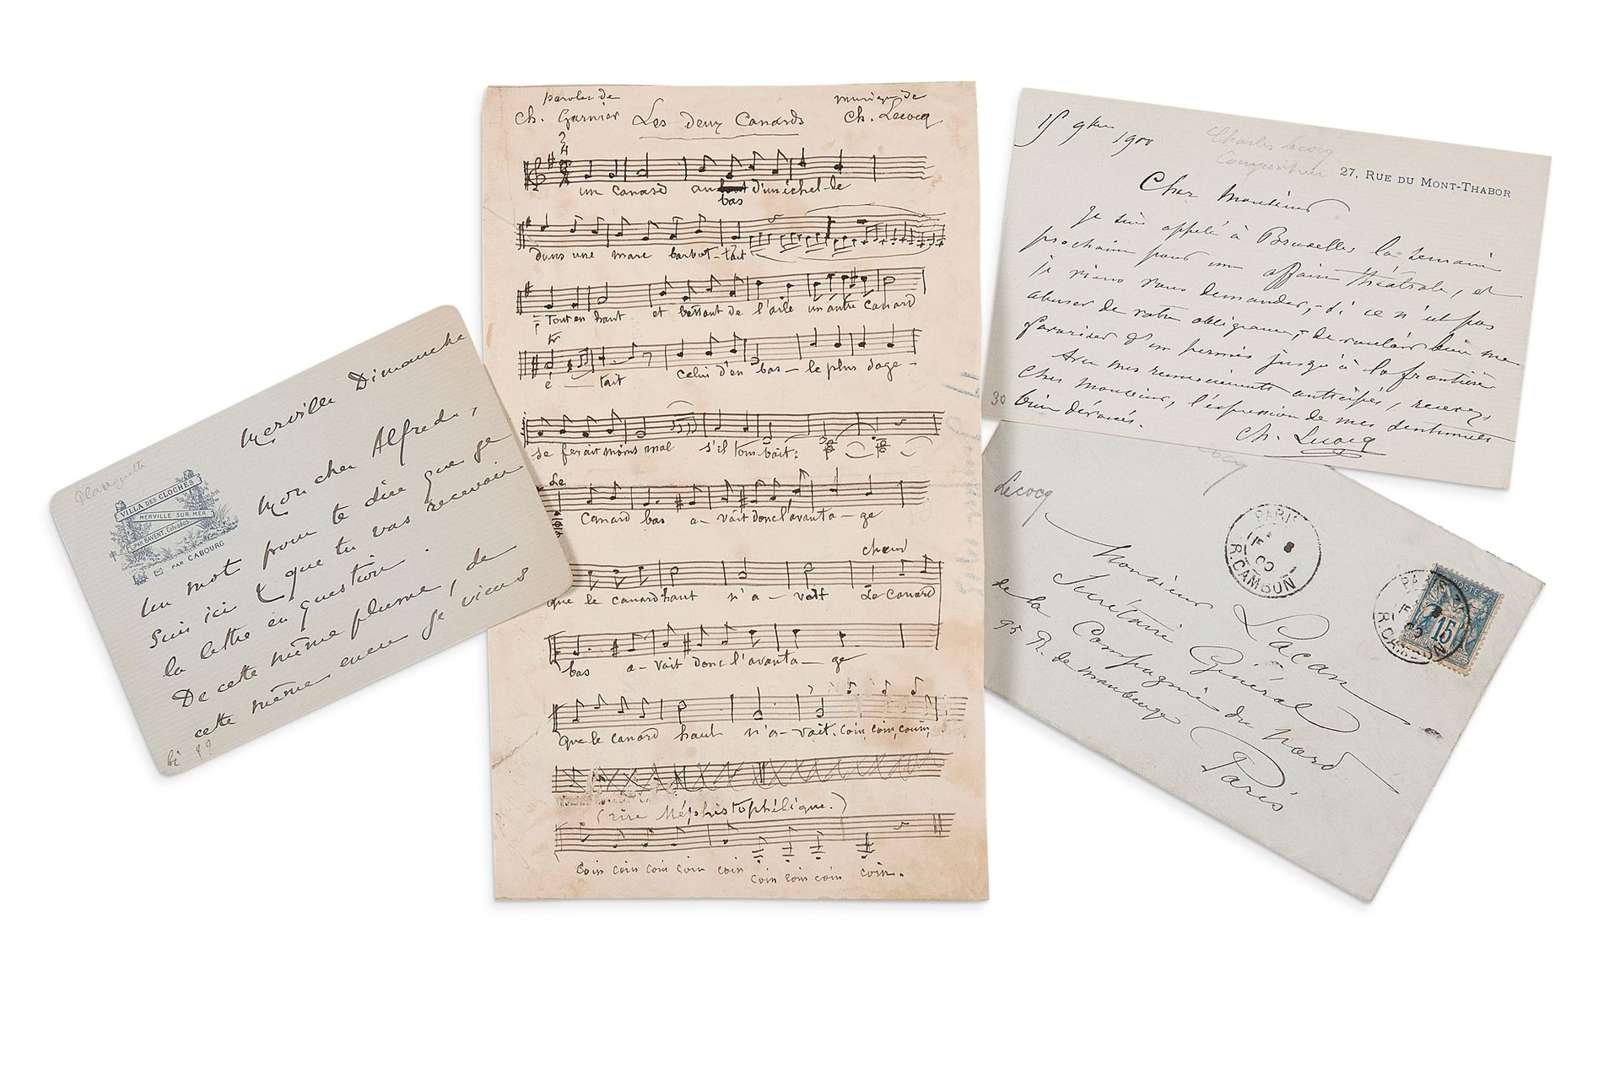 Planquette
VILLA DES CLOCHES
MERVILLE SUR MER
PAR CABOURG
Merville Dimanche
Mon cher Alfred,
Un mot pour te dire que je
suis ici & que tu vas recevoir
la lettre en question.
De cette même plume, de
cette même encre je viens
paroles de
Ch. Garnier
Les deux Canards
musique de
Ch. Lecocq
un canard au bas d'un échel-le
dans une mare barbot-tait
Tout en haut et battant de l'aile un autre canard
é - tait celui d'en bas - le plus sage -
se ferait moins mal s'il tom-bait:
Le
Canard bas a - vait donc l'avanta - ge
chœur
que le canard haut n'a - vait Le Canard
bas a - vait donc l'avanta - ge
que le canard haut n'a - vait. Coin, coin, couin,
(rire Méphistophélique.)
Coin coin coin coin coin coin coin coin coin.
15 9bre 1900
Charles Lecocq
Compositeur
27, RUE DU MONT-THABOR
Cher Monsieur
Je suis appelé à Bruxelles la semaine
prochaine pour une affaire théâtrale, et
je viens vous demander, si ce n'est pas
abuser de votre obligeance, de vouloir bien me
favoriser d'un permis jusqu'à la frontière
Avec mes remerciements anticipés, recevez,
cher monsieur, l'expression de mes sentiments
30
bien dévoués.
Ch. Lecocq
Lecocq
PARIS
R. CAMBON
PARIS
R. CAMBON
15
Monsieur Lacan
Secrétaire Général
de la Compagnie du Nord
95 R. de Maubeuge
Paris